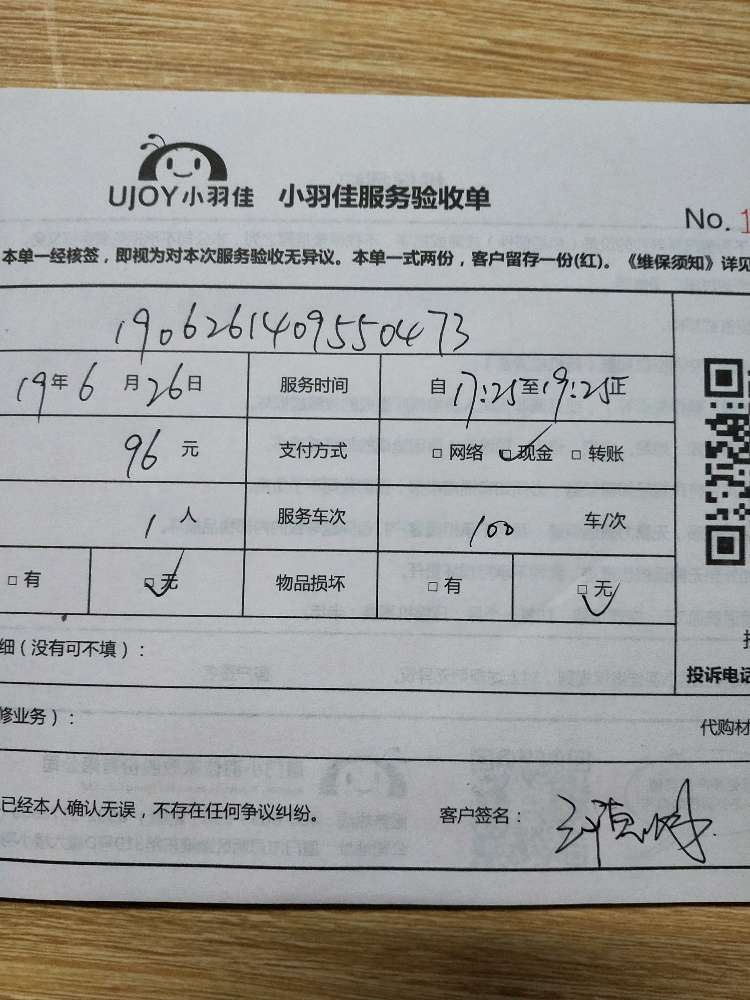 UJOY小羽佳 小羽佳服务验收单
No. 1
本单一经核签，即视为对本次服务验收无异议。本单一式两份，客户留存一份(红)。《维保须知》详见
190626140955​0473
19年6月26日 服务时间 自17:25至19:25正
96元 支付方式 □ 网络 □ 现金 □ 转账
1人 服务车次 100 车/次
□ 有 □ 无 物品损坏 □ 有 □ 无
细（没有可不填）：
投诉电话
修业务）：
代购材
已经本人确认无误，不存在任何争议纠纷。 客户签名：